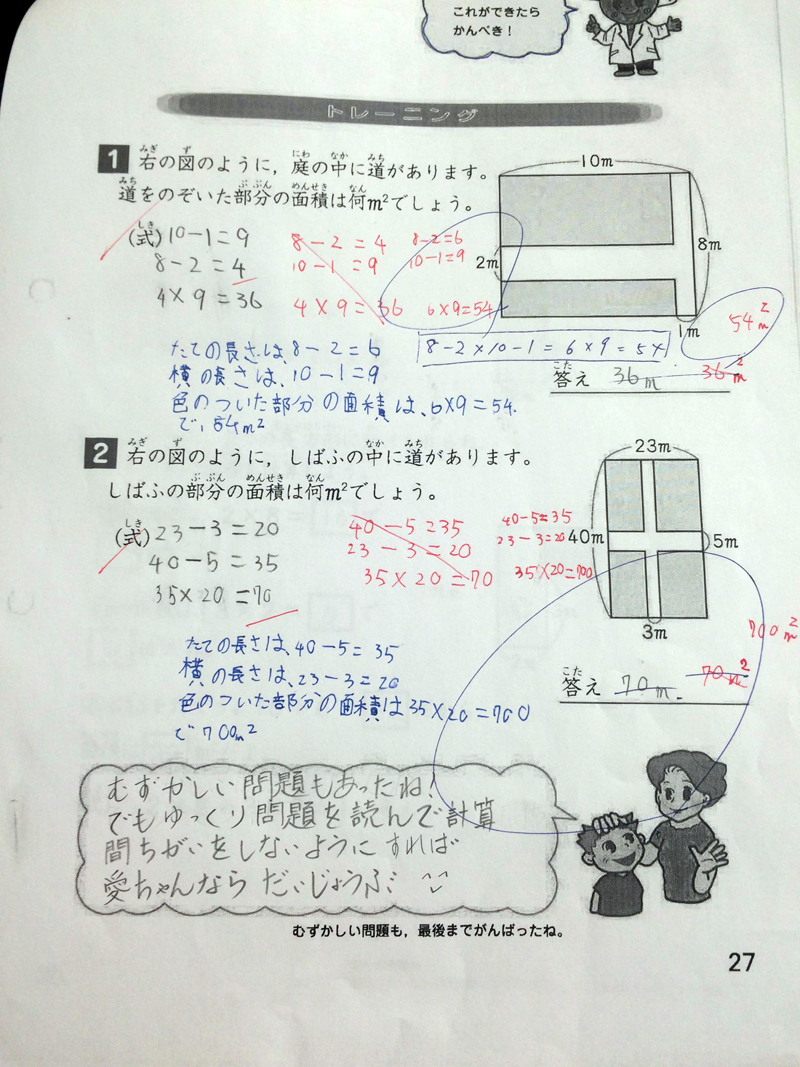 これができたら
かんぺき!
トレーニング
1 右の図のように,庭の中に道があります。
道をのぞいた部分の面積は何m²でしょう。
10m
8m
2m
1m
(式) 10-1=9
8-2=4
4×9=36
8-2=4
10-1=9
4×9=36
8-2=6
10-1=9
6×9=54
8-2×10-1=6×9=54
54m²
答え 36m 36m²
たての長さは、8-2=6
横の長さは、10-1=9
色のついた部分の面積は、6×9=54.
で、54m²
2 右の図のように,しばふの中に道があります。
しばふの部分の面積は何m²でしょう。
23m
40m
5m
3m
(式) 23-3=20
40-5=35
35×20=70
40-5=35
23-3=20
35×20=70
40-5=35
23-3=20
35×20=700
700m²
答え 70m 70m²
たての長さは、40-5=35
横の長さは、23-3=20
色のついた部分の面積は35×20=700
で700m²
むずかしい問題もあったね!
でもゆっくり問題を読んで計算
間ちがいをしないようにすれば
愛ちゃんならだいじょうぶ
むずかしい問題も,最後までがんばったね。
27